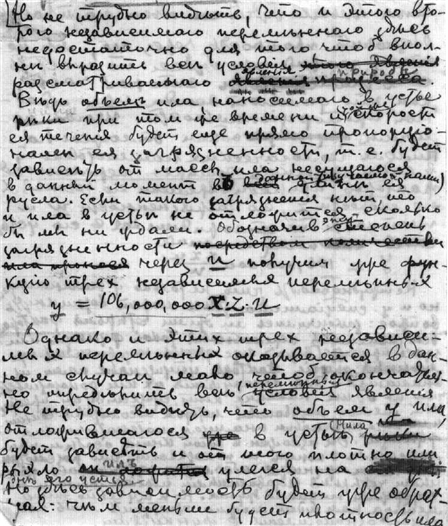 Но не трудно видеть, что и этого вто
рого независимого переменного здесь
недостаточно для того чтоб впол-
не выразить весь условия этого явления
рассматриваемого явления природы
Ведь объем ила, наносимого в устье
реки при том же времени и скорост
ея течения будет еще прямо пропорцио
нален ея загрязненности, т. е. будет
зависеть от массы ила несущагося
в данный момент в
русла. Если такого загрязнения нет, то
и ила в устье не отложится сколько
бы мы ни ждали. Обозначив степень
загрязненности посредством количества
ила проносе через u получим уже функ
цию трех независимых переменных
y = 106,000,000 x·z·u
Однако и этих трех независи-
мых переменных оказывается в дан-
ном случае мало чтоб окончатель
но определить весь условия явления
переменный
Не трудно видеть, что объем y ила,
отложившегося уже в устье реки
будет зависеть и от того плотно или
рыхло улегся на
его устья
Но здесь зависимость будет уже обрат-
ная: чем меньше будет плотность ила